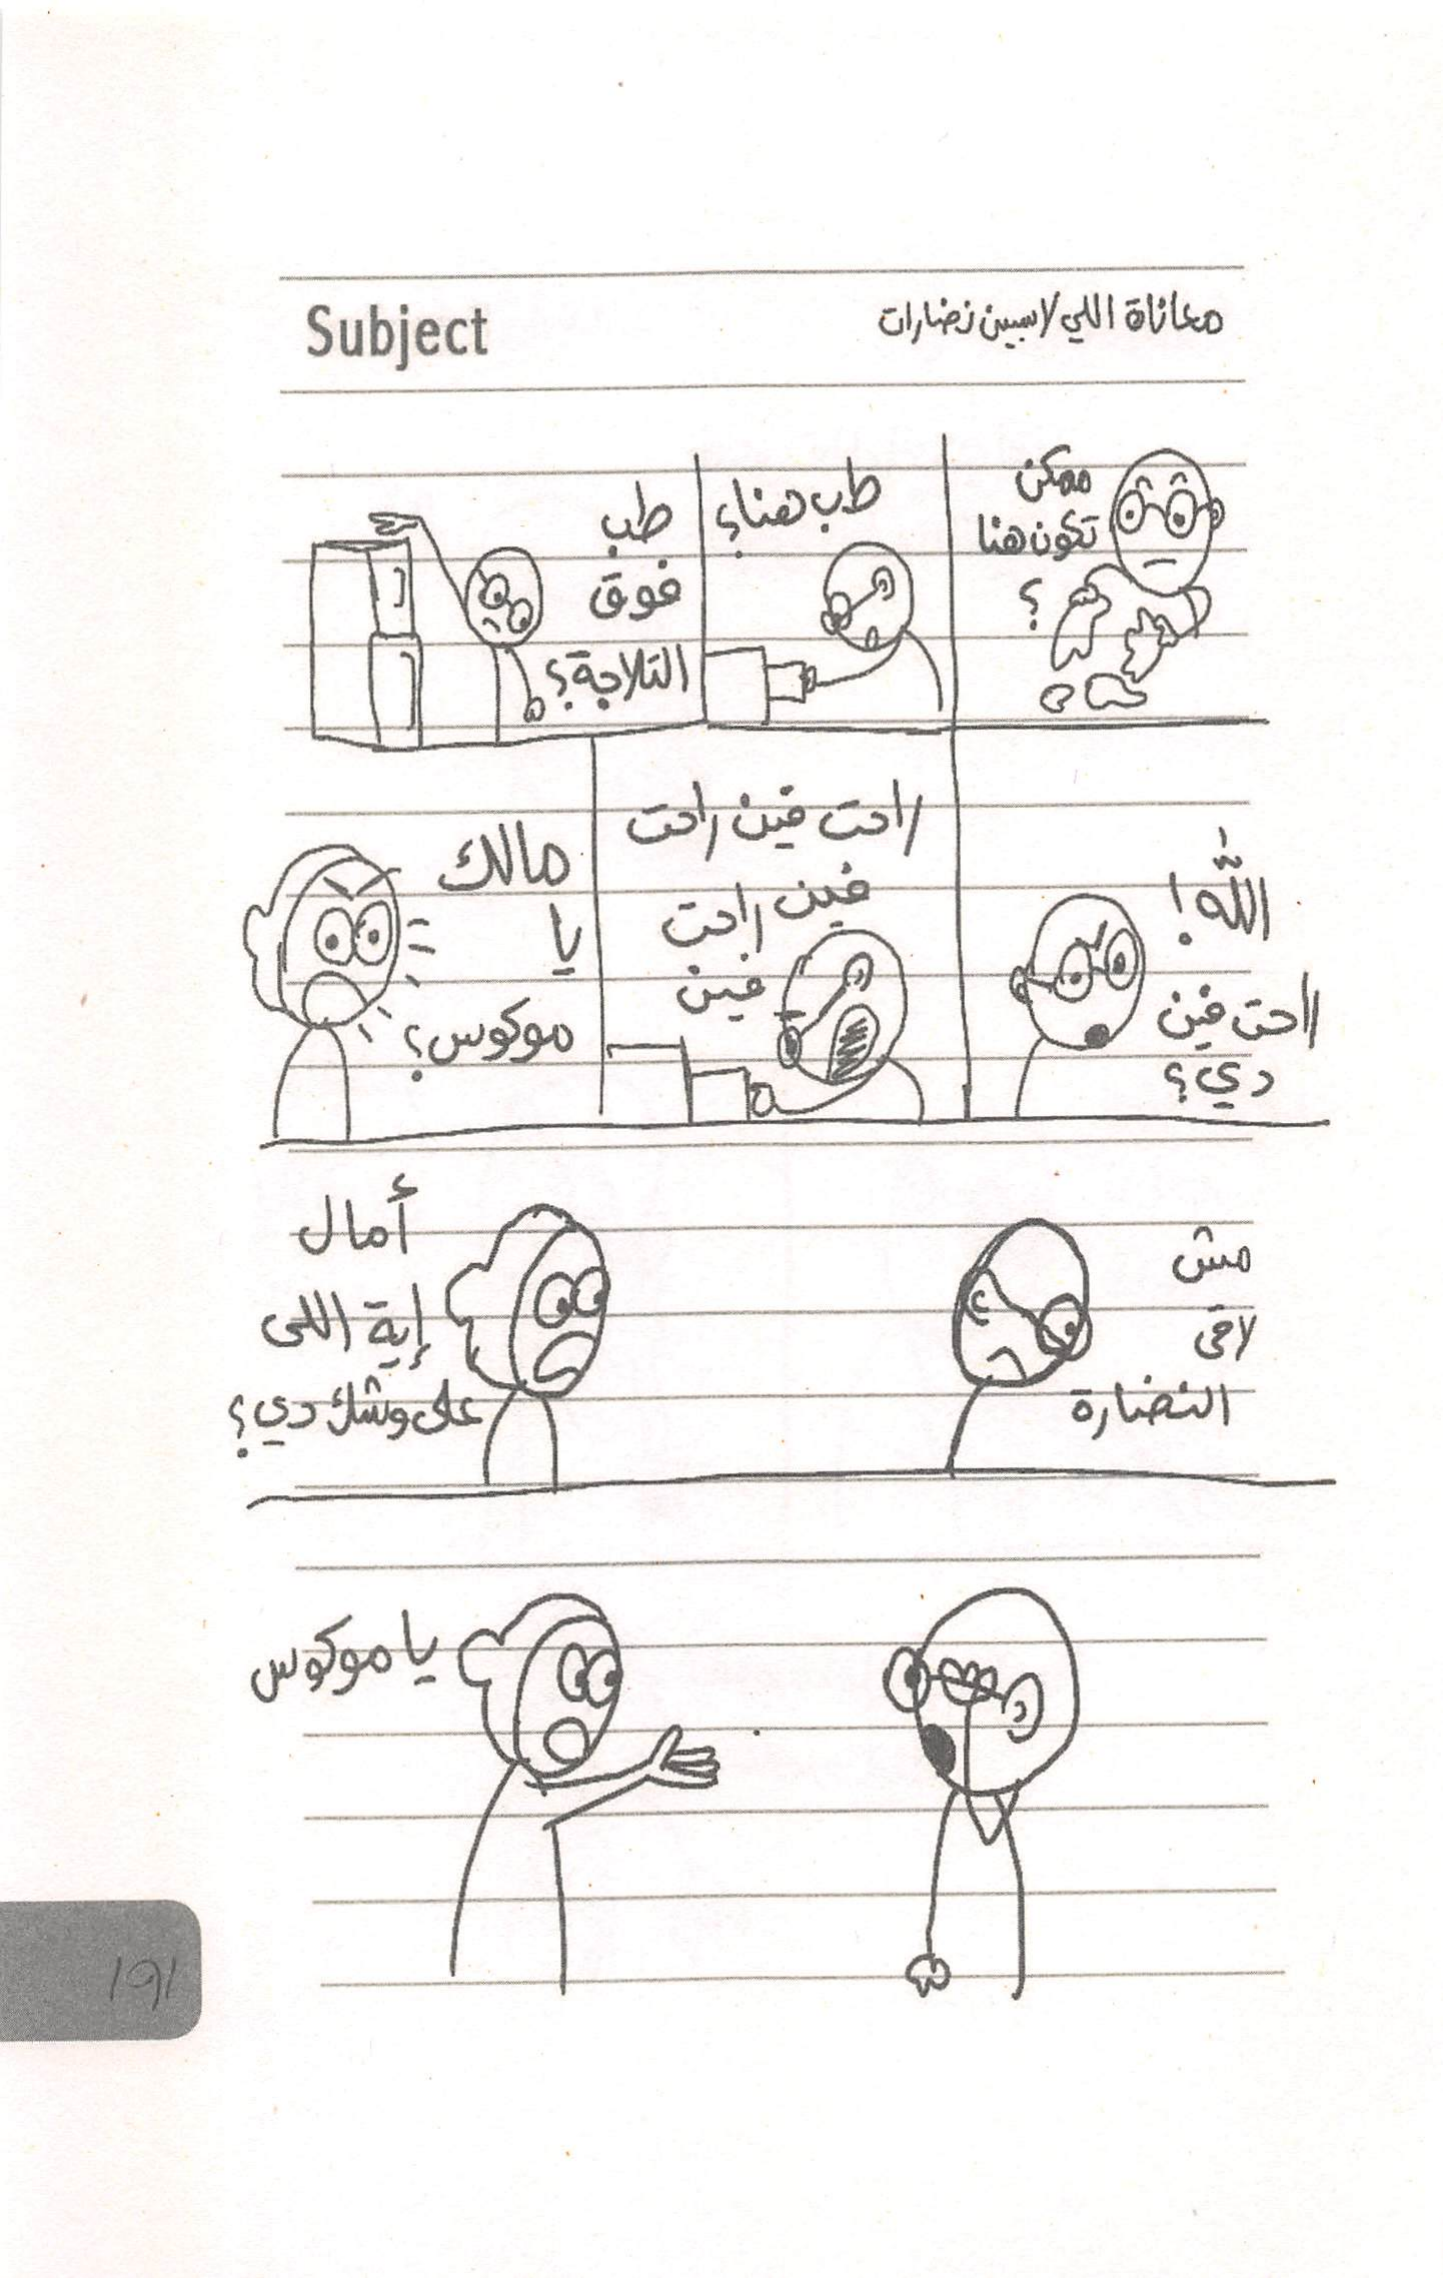 Subject
معاناة اللي لابسين نضارات
ممكن
تكون هنا
؟
طب هنا؟
طب
فوق
التلاجة؟
الله!
راحت فين
دي؟
راحت فين راحت
فين راحت
فين
مالك
يا
موكوس؟
مش
لاقى
النضارة
أمال
إية اللى
على وشك دي؟
يا موكوس
١٩١